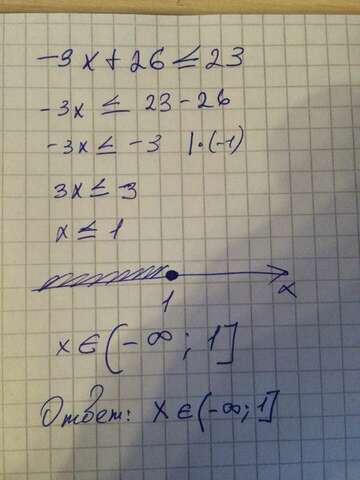 -3x + 26 ≤ 23
-3x ≤ 23 - 26
-3x ≤ -3 |·(-1)
3x ≤ -3
x ≤ 1
1 x
x ∈ (-∞; 1]
Ответ: x ∈ (-∞; 1]